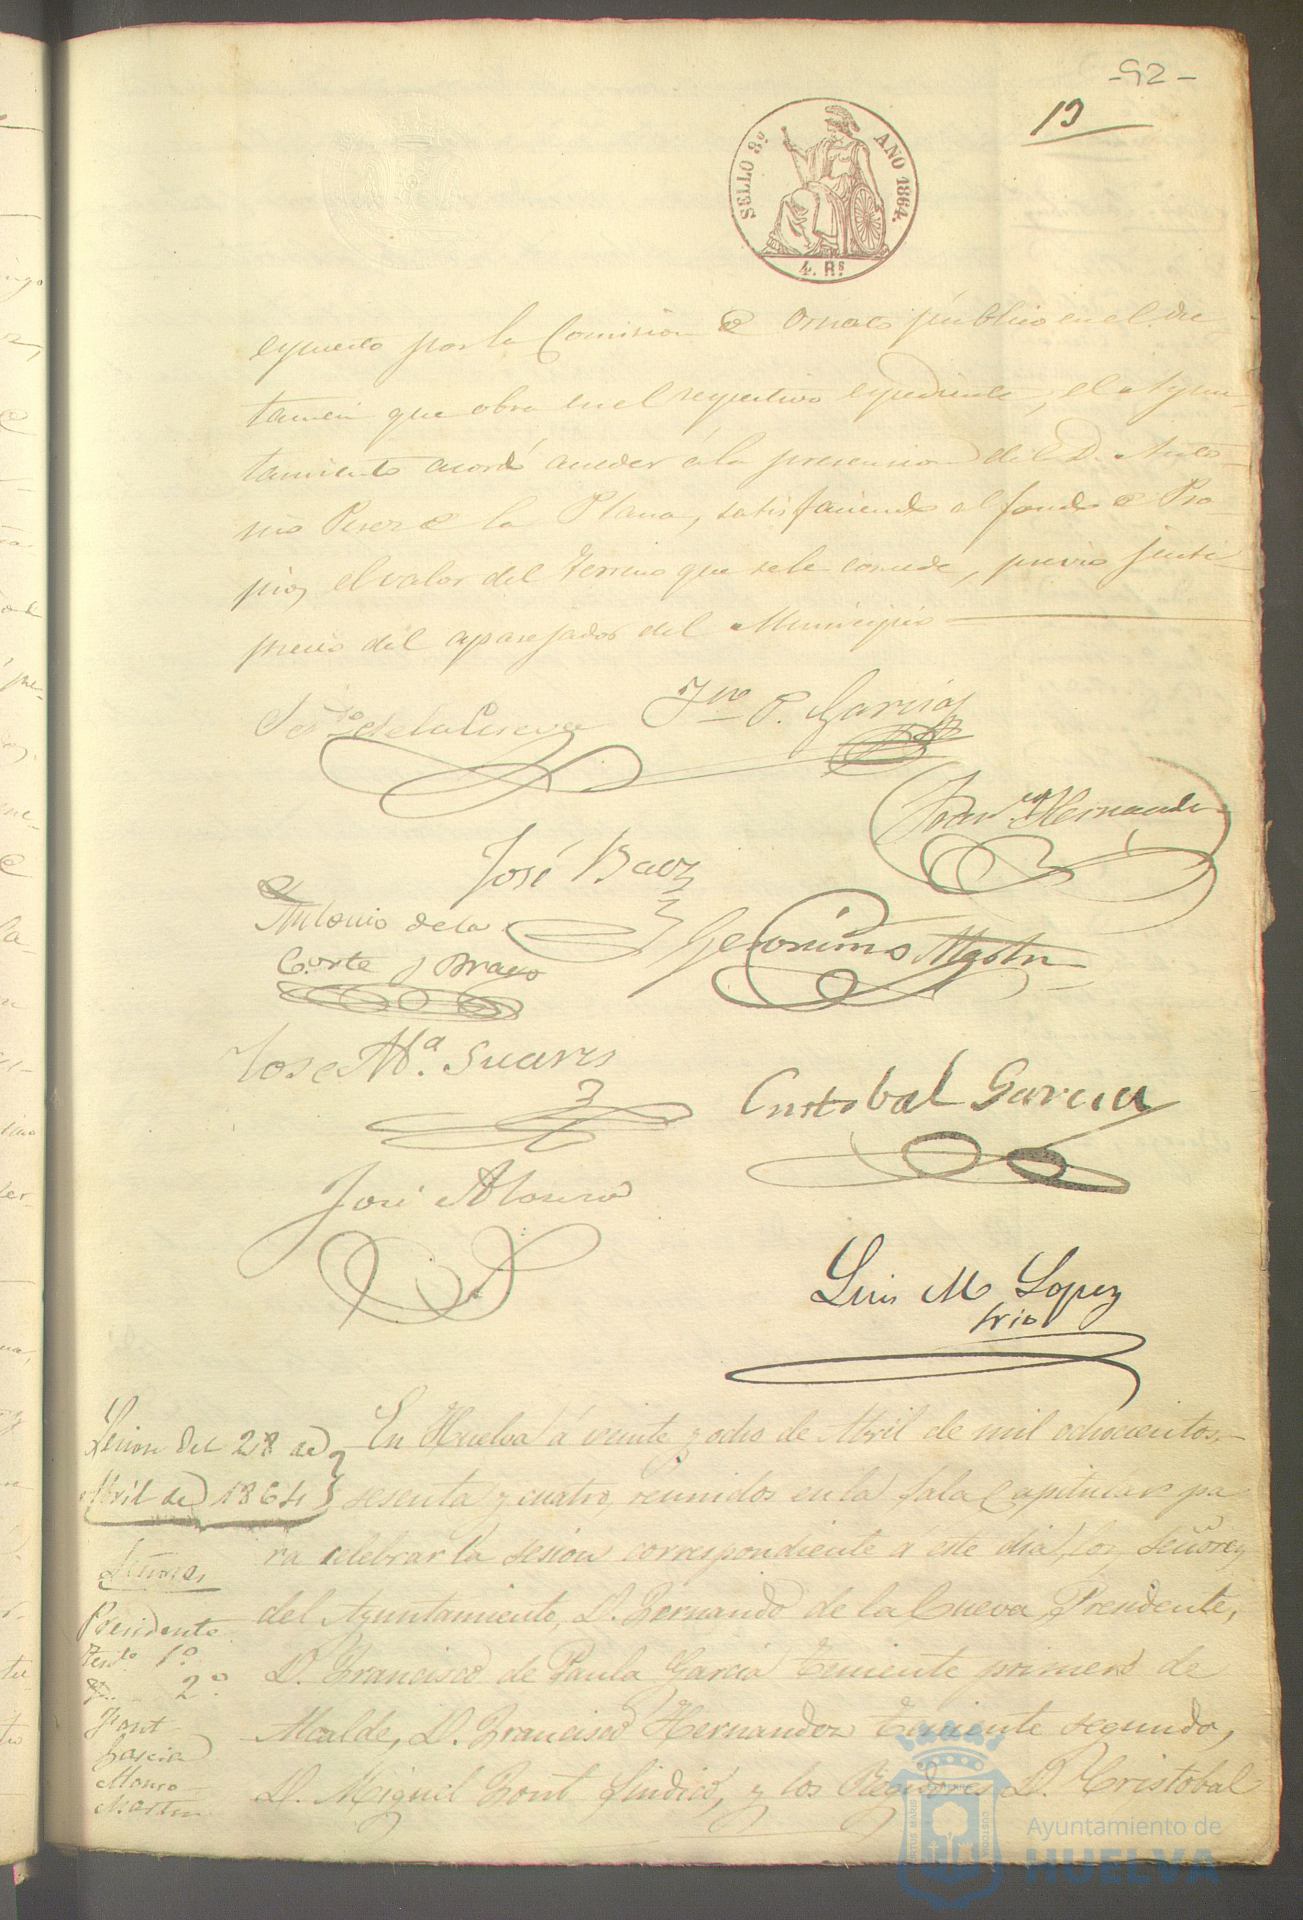 -92-
19
SELLO 8º AÑO 1864.
4. Rs
espuesto por la Comision de Ornato público en el dic
tamen que obra en el respectivo espediente, el Ayun-
tamiento acordó acceder á la pretension del D. Anto-
nio Perez de la Plana, satisfaciendo al fondo de Pro
pios, el valor del terreno que se le concede, previo justi-
precio del aparejador del Municipio
Ferndo de la Cueva
Fco P. Garcia
Franco Hernandez
José Baez
Antonio de la
Corte y Bravo
Geronimo Martin
Jose Mª. Suares
Cristobal Garcia
José Alonso
Luis M Lopez
Srio
Sesion del 28 de
Abril de 1864
En Huelva á veinte y ocho de Abril de mil ochocientos
sesenta y cuatro, reunidos en la Sala Capitular pa
ra celebrar la sesion correspondiente á este dia, los señores
del Ayuntamiento, D. Fernando de la Cueva Presidente,
D. Francisco de Paula Garcia Teniente primero de
Alcalde, D. Francisco Hernandez Teniente segundo,
D. Miguel Font Sindico, y los Regidores D. Cristobal
Señores
Presidente
Tente 1º
2º
Font
Garcia
Alonso
Martin
Ayuntamiento de
HUELVA